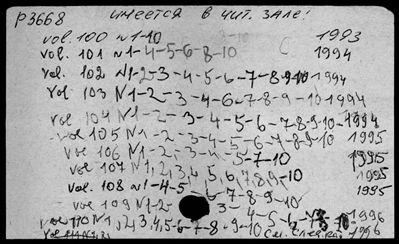 P3668 имеется в чит. зале!
vol. 100 N1-10 1993
vol. 101 N1-4-5-6-8-10 C 1994
vol. 102 N1-2-3-4-5-6-7-8-9-10 1994
vol 103 N1-2-3-4-6-7-8-9-10 1994
vol 104 N1-2-3-4-5-6-7-8-9-10 1994
vol 105 N1-2-3-4-5-6-7-8-9-10 1995
vol 106 N1-2-3-4-5-7-10 1995
vol 107 N1,2,3,4,5,6,7,8,9-10 1995
vol. 108 N1-4-5-6-7-8-9-10 1995
vol 109 N1-2-3-4-5-6-7- 10 1996
vol 110 N1,2,3,4,5-6-7-8-9-10 1996